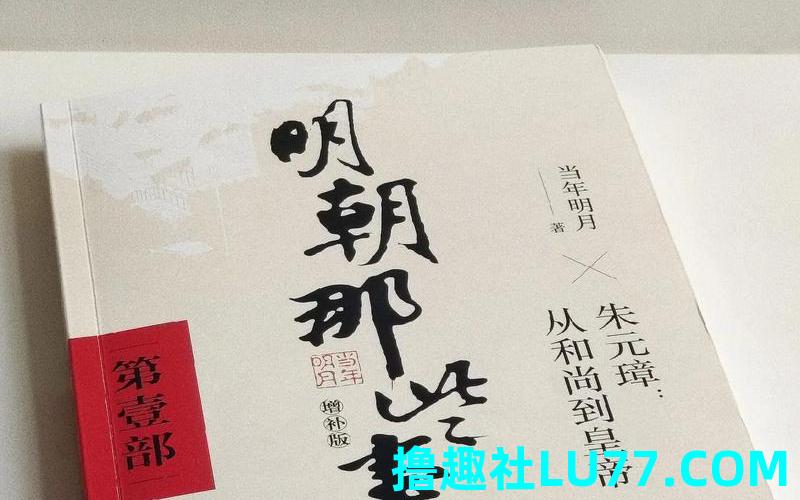 明朝那些事
当年明月
著
朱元璋：
从和尚到皇帝
当年
明月
增补版
第壹部
撸趣社LU77.COM